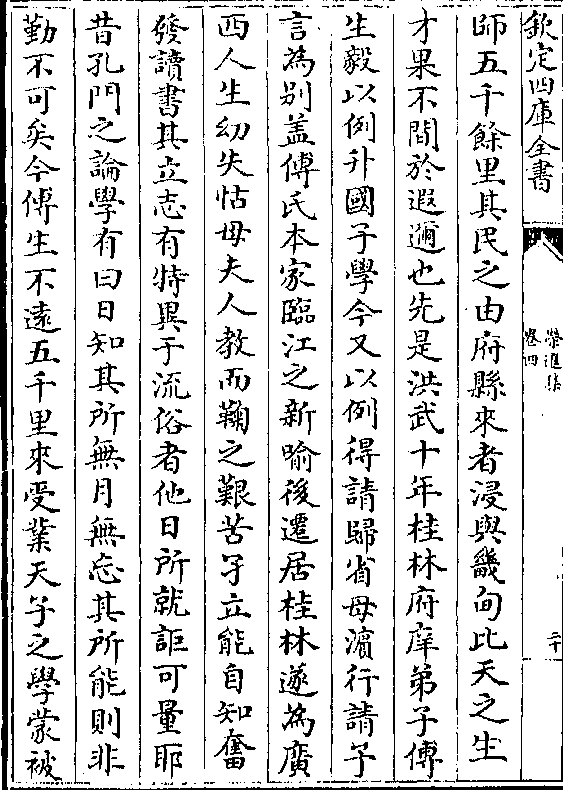 欽定四庫全書
榮進集
卷四
二十
師五千餘里其民之由府縣來者浸與畿甸比天之生
才果不間於遐邇也先是洪武十年桂林府庠弟子傅
生毅以例升國子學今又以例得請歸省母濵行請予
言為别盖傅氏本家臨江之新喻後遷居桂林遂為廣
西人生幼失怙母夫人教而鞠之艱苦孑立能自知奮
發讀書其立志有特異于流俗者他日所就詎可量耶
昔孔門之論學有曰日知其所無月無忘其所能則非
勤不可矣今傅生不逺五千里來受業天子之學蒙被